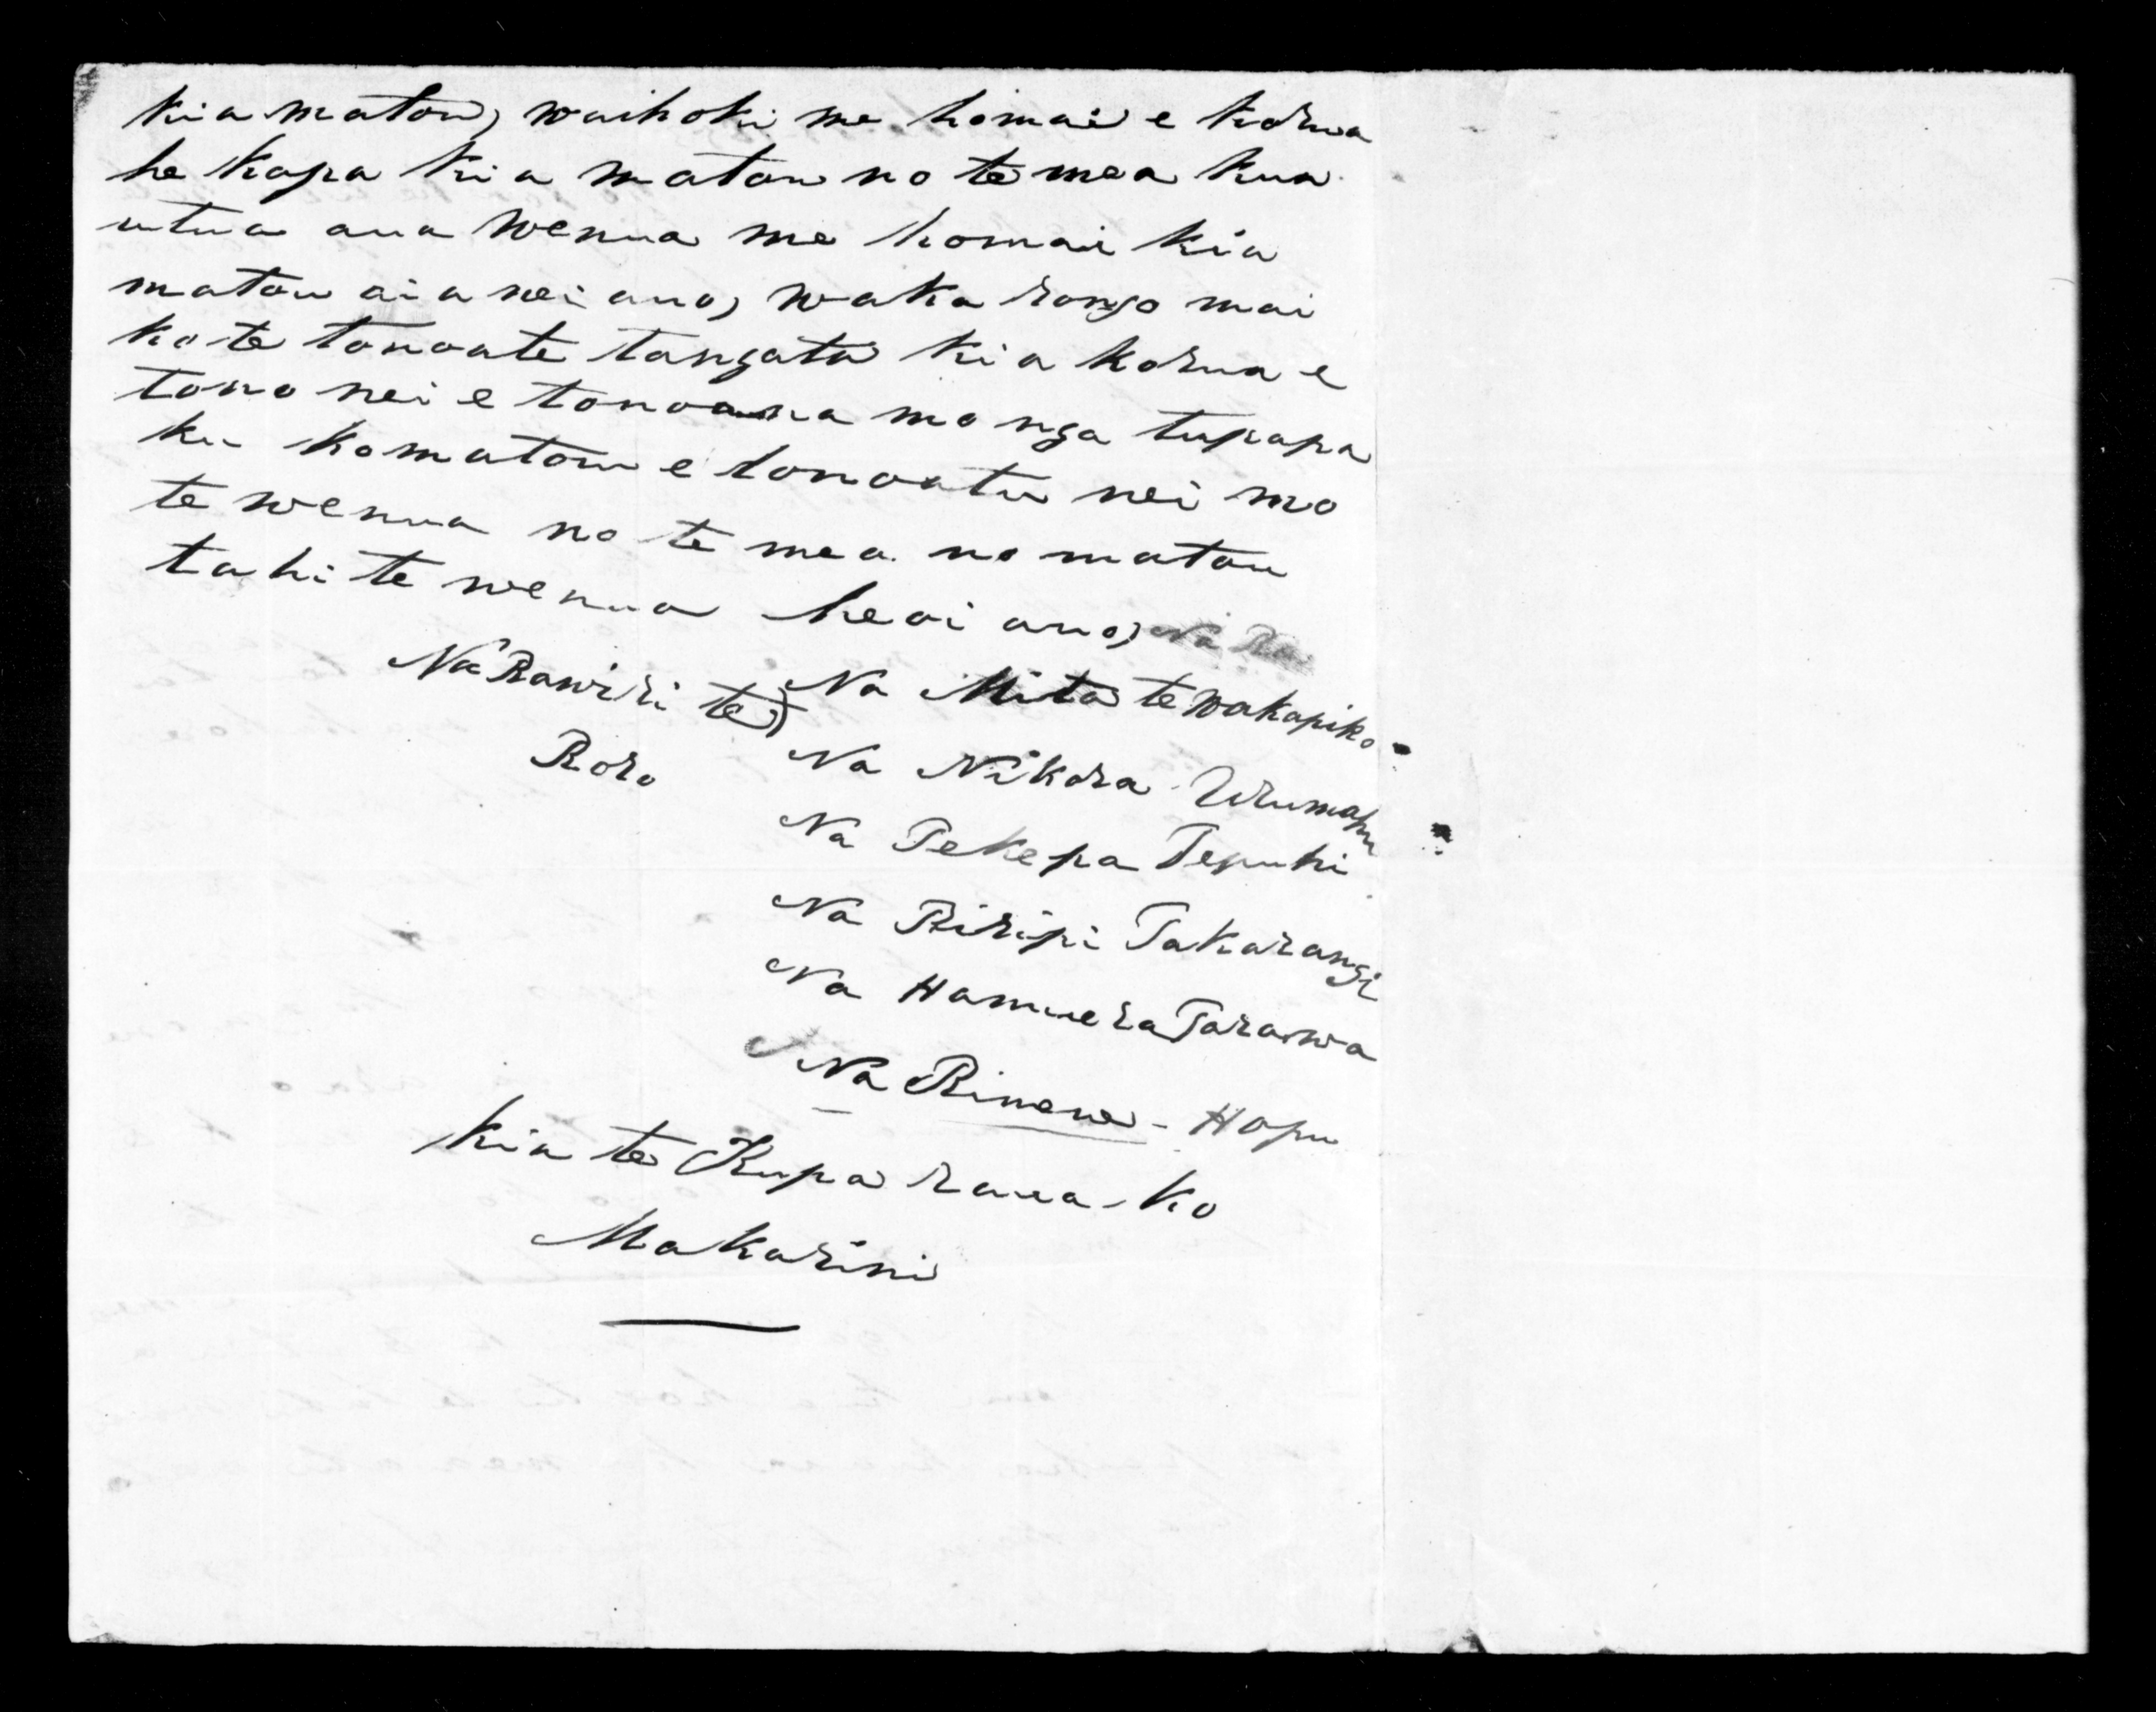 kia matou, waihoki me homai e korua
he kapa kia matou no te mea kua
utua aua wenua me homai kia
matou aianei ano, waka rongo mai
ko te tonoate tangata kia korua e
tono nei e tonoana mo nga tupapa
ku ko matou e tonoatu nei mo
te wenua no te mea no matou
tahi te wenua heoi ano, Na Ra
Na Rawiri te)
Roro
Na Mita te Wakapiko
Na Nikora Urumahu
Na Pekepa Tepuhi
Na Piripi Takarangi
Na Hamuera Tarawa
Na Rimene - Hapu
Kia te Kupa raua ko
Makarini